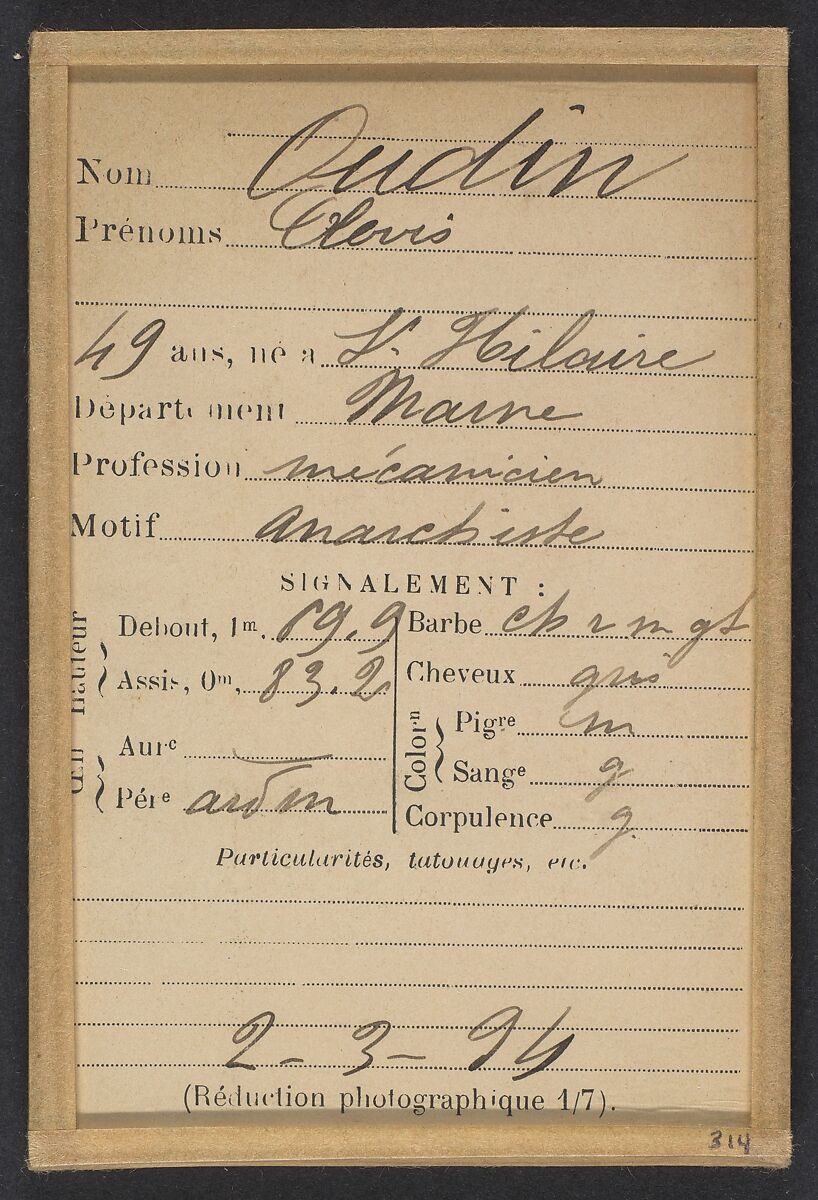 Nom Oudin
Prénoms Clovis
49 ans, né à St. Hilaire
Département Marne
Profession mécanicien
Motif Anarchiste
SIGNALEMENT :
Hauteur
Debout, 1m, 69.9
Assis, 0m, 83.2
Œil
Aure
Pére
Barbe ch r m gt
Cheveux gris
Colorn
Pigre m
Sange g
Corpulence g.
Particularités, tatouages, etc.
2 - 3 - 94
(Réduction photographique 1/7).
314